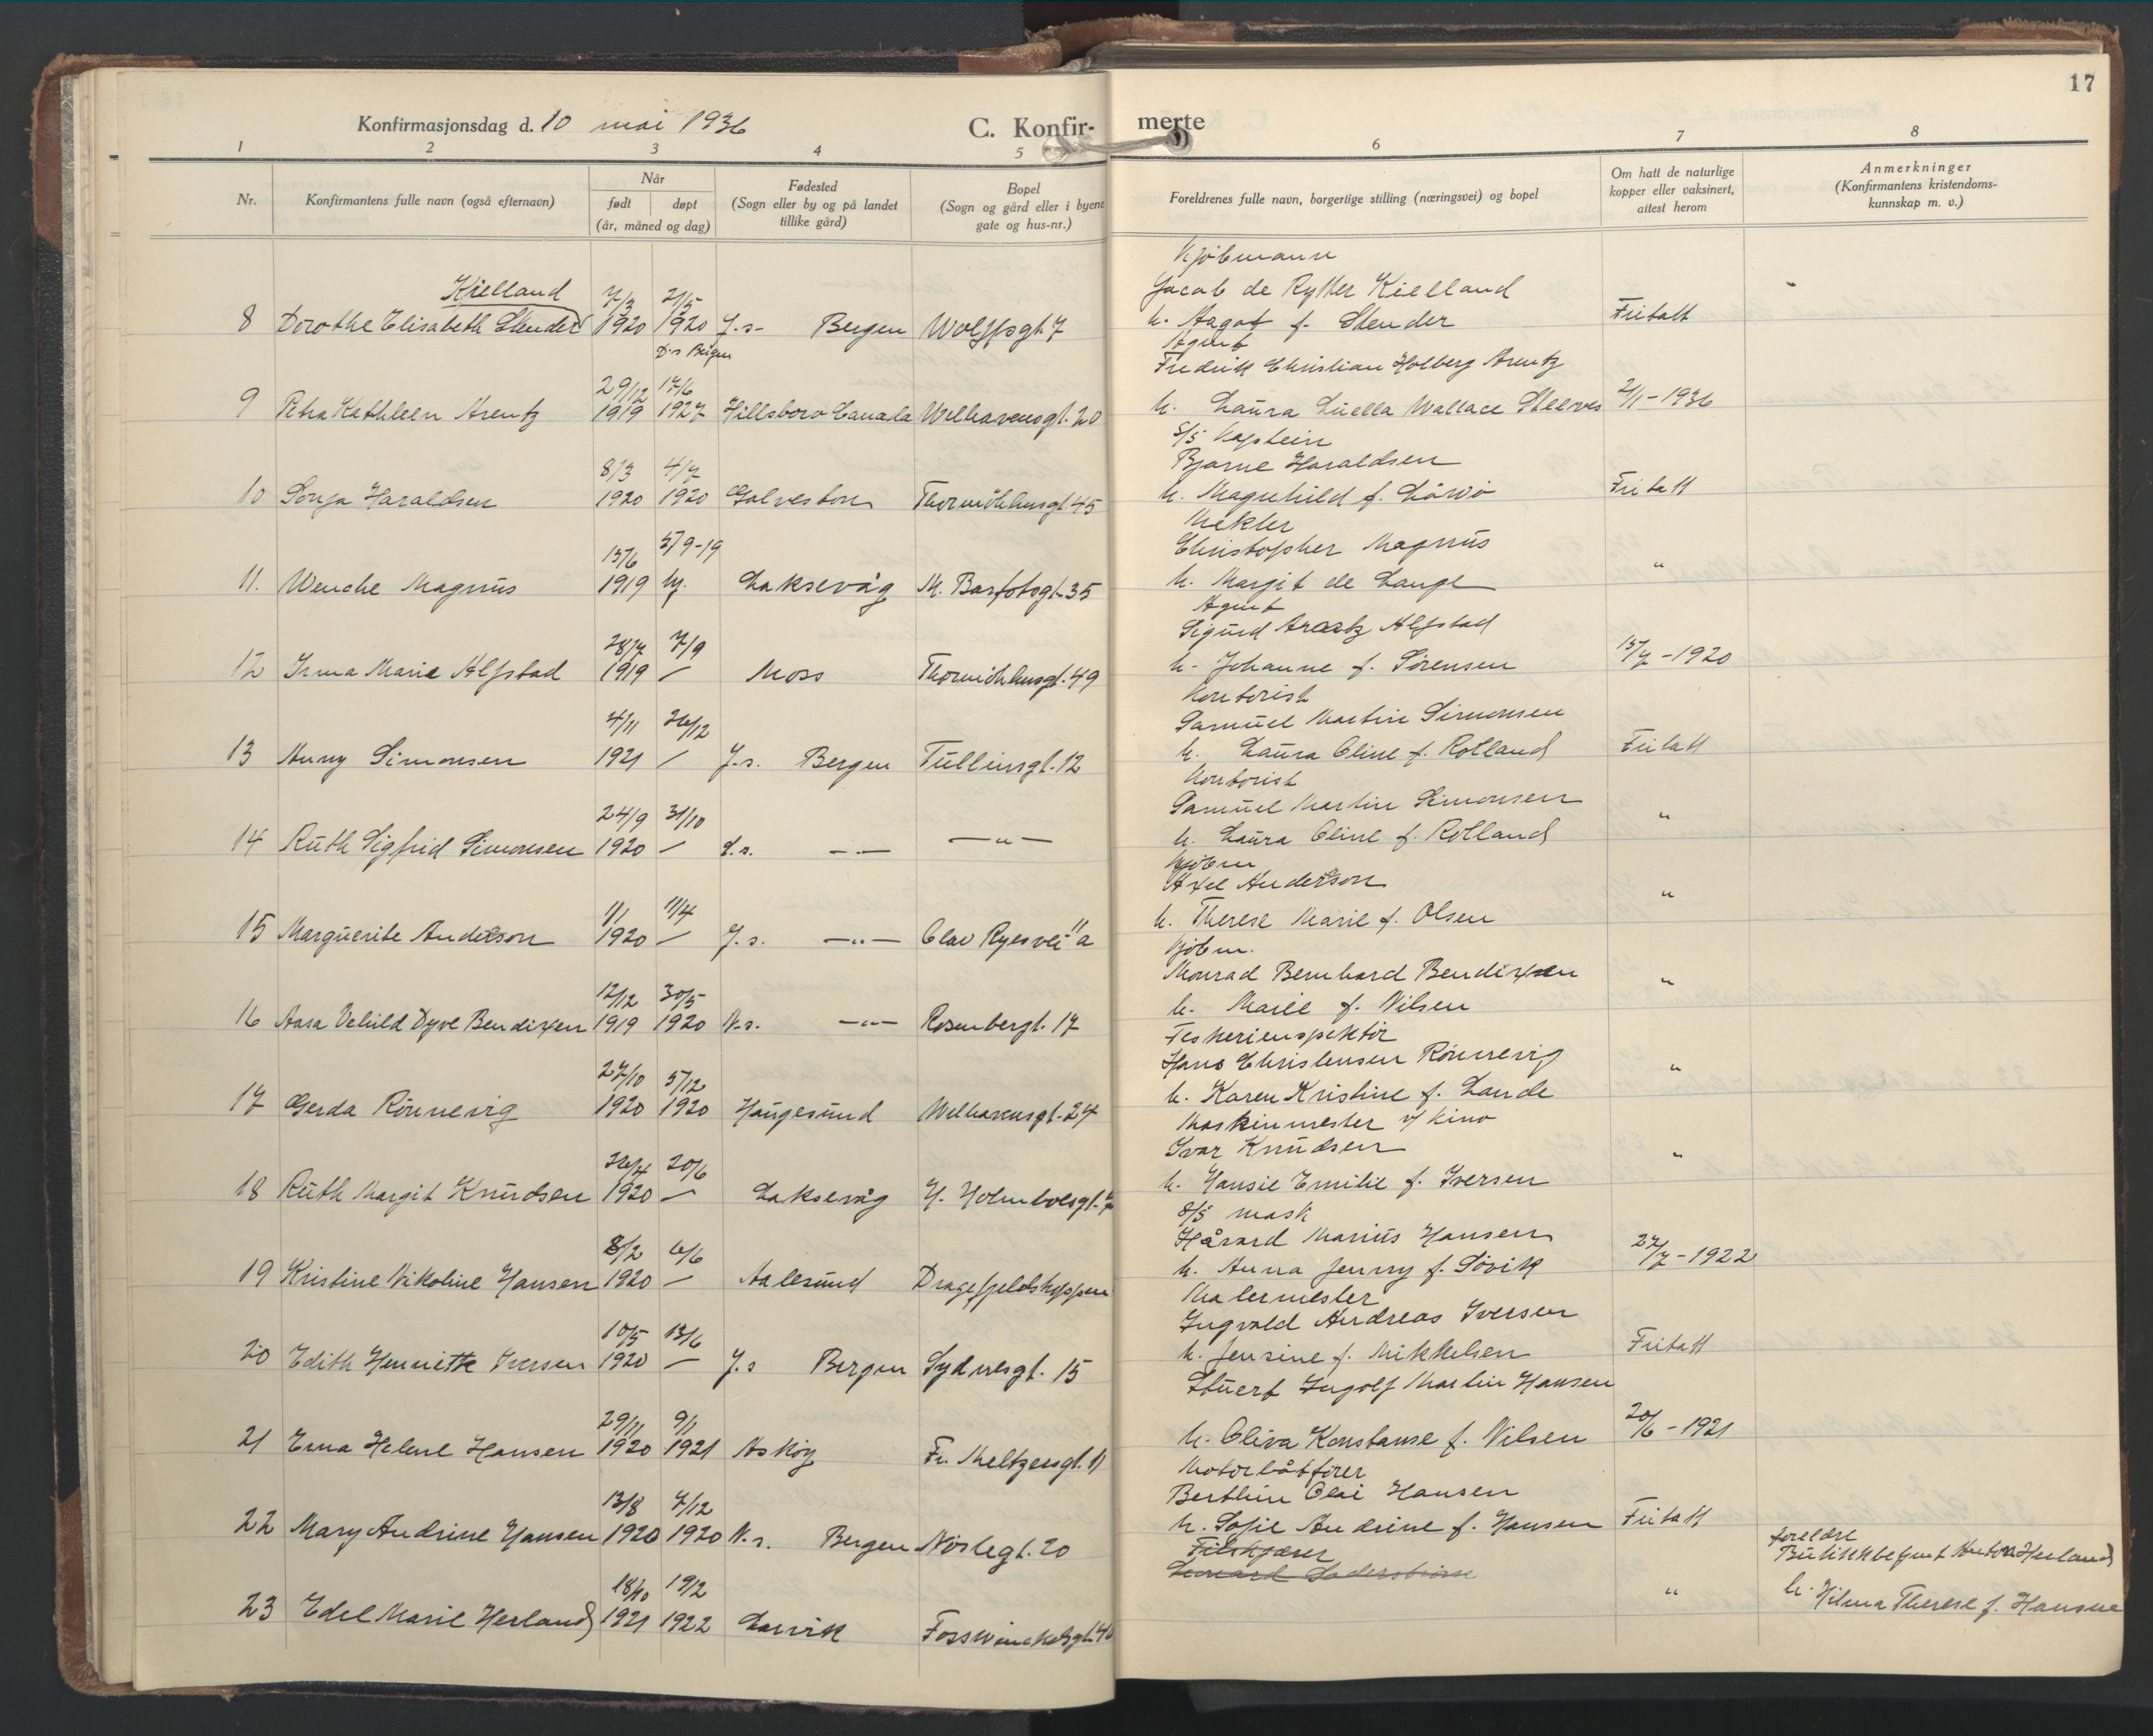 17
Konfirmasjonsdag d. 10 mai 1936
C. Konfir-merte
1 2 3 4 5 6 7 8
Nr.
Konfirmantens fulle navn (også efternavn)
Når
født døpt
(år, måned og dag)
Fødested
(Sogn eller by og på landet
tillike gård)
Bopel
(Sogn og gård eller i byene
gate og hus-nr.)
Foreldrenes fulle navn, borgerlige stilling (næringsvei) og bopel
Om hatt de naturlige
kopper eller vaksinert,
attest herom
Anmerkninger
(Konfirmantens kristendoms-
kunnskap m. v.)
Kielland 7/3 21/5 Kjøbmann
Jacob de Rytter Kielland
8 Dorothe Elisabeth Stender 1920 1920 J.s- Bergen Wolffsgt. 7 h. Aagot f. Stender Fritatt
D.s Bergen Agent
Fredrik Christian Holberg Arentz
29/12 17/6
9 Petra Kathleen Arentz 1919 1927 Hillsboro Canada Welhavensgt. 20 h. Laura Luella Wallace Steeves 2/1-1936
S/S Kaptein
8/3 4/7 Bjarne Haraldsen
10 Sonja Haraldsen 1920 1920 Galveston Thormöhlensgt. 45 h. Magnhild f. Låwö Fritatt
Mekler
13/6 5/9-19 Christopher Magnus
11. Wenche Magnus 1919 hj. Laksevåg M. Barfotsgt. 35 h. Margit de Lange "
Agent
28/7 7/9 Sigurd Arentz Alfstad
12 Irma Marie Alfstad 1919 / Moss Thormöhlensgt. 49 h. Johanne f. Sørensen 15/7-1920
Kontorist
4/11 26/12 Samuel Martin Simonsen
13 Anny Simonsen 1921 / J.s. Bergen Tullinsgt. 12 h. Laura Oline f. Rolland Fritatt
Kontorist
24/9 31/10 Samuel Martin Simonsen
14 Ruth Sigfrid Simonsen 1920 / d.s. — — — " — h. Laura Oline f. Rolland "
Kjøbm
1/1 11/4 Axel Anderson
15 Marguerite Anderson 1920 — J.s. — " — Olav Ryesvei 11 a h. Therese Marie f. Olsen "
Kjøbm.
12/12 30/5 Monrad Bernhard Bendixen
16 Aasa Vehild Dyve Bendixen 1919 1920 N.s. — " — Rosenbergt. 17 h. Marie f. Nilsen "
Fiskeriinspektör
27/10 5/12 Hans Christensen Rönnevig
17 Gerda Rönnevig 1920 1920 Haugesund Welhavensgt. 24 h. Karen Kristine f. Lande "
Maskinmester v/ kino
26/4 20/6 Ivar Knudsen
18 Ruth Margit Knudsen 1920 — Laksevåg H. Holmboesgt. 7 h. Hansie Emilie f. Iversen "
S/S mask
8/2 6/6 Håvard Marius Hansen
19 Kristine Nikoline Hansen 1920 — Aalesund Dragefjeldstrappen h. Anna Jenny f. Sövik 27/7-1922
Malermester
10/5 13/6 Ingvald Andreas Iversen
20 Edith Henriette Iversen 1920 — J.s Bergen Sydnesgt. 15 h. Jensine f. Mikkelsen Fritatt
29/11 9/1 Stuert Ingolf Martin Hansen
21 Erna Helene Hansen 1920 1921 Askøy Fr. Meltzersgt. 11 h. Oliva Konstanse f. Nilsen 20/6-1921
Motorbåtfører
13/8 7/12 Berthin Olai Hansen
22 Mary Andrine Hansen 1920 1920 N.s. Bergen Nöstegt. 20 h. Sofie Andrine f. Hansen Fritatt
18/10 19/2 foreldre
Leonard Söderström Butikkbetjent Anton Herland
23 Edel Marie Herland 1921 1922 Larvik Fosswinckelsgt. 40 " h. Hilma Therese f. Hansen